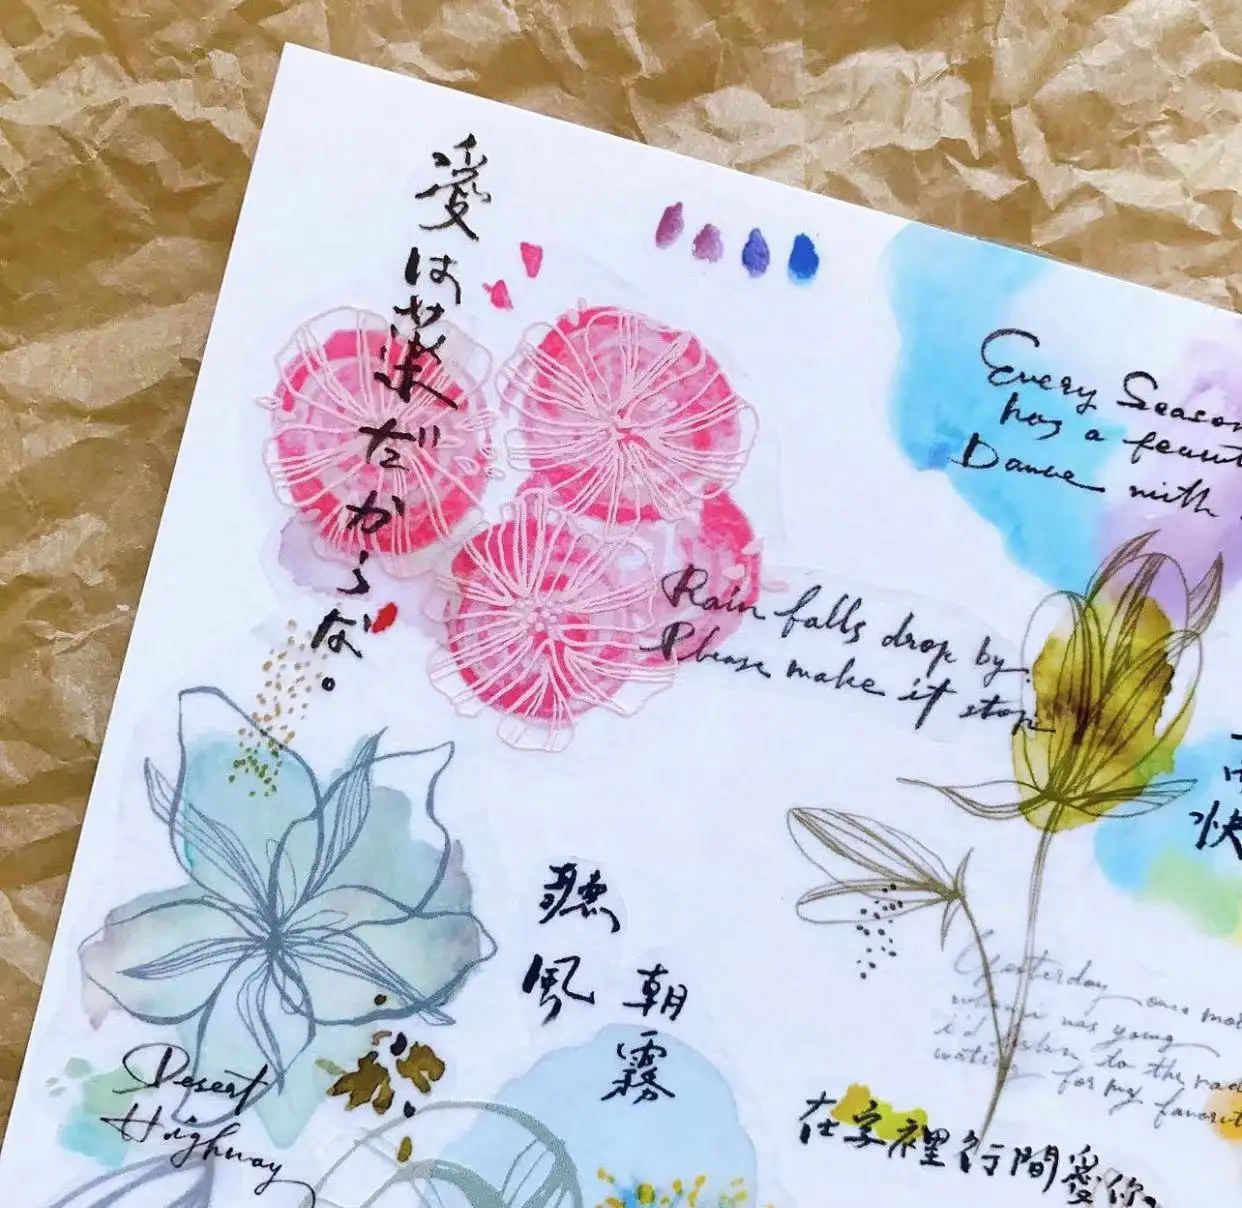 愛は薬だからな。
Every Season
has a
Dance with
Rain falls drop by
Please make it stop
快
聽風
朝霧
Yesterday once
when i was young
i'd listen to the
waiting for my
在字裡行間愛你。
Desert
Highway